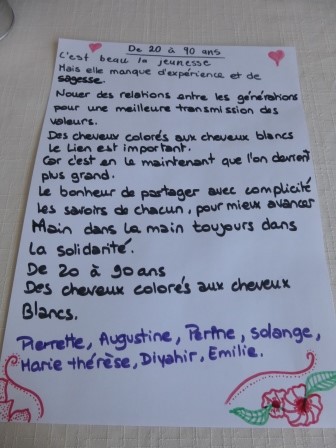 De 20 à 90 ans
C'est beau la jeunesse
Mais elle manque d'expérience et de
sagesse.
Nouer des relations entre les générations
pour une meilleure transmission des
valeurs.
Des cheveux colorés aux cheveux blancs
Le lien est important.
Car c'est en le maintenant que l'on devient
plus grand.
Le bonheur de partager avec complicité
les savoirs de chacun, pour mieux avancer
Main dans la main toujours dans
la solidarité.
De 20 à 90 ans
Des cheveux colorés aux cheveux
Blancs.
Pierrette, Augustine, Perine, Solange,
Marie thérèse, Diyahir, Emilie.